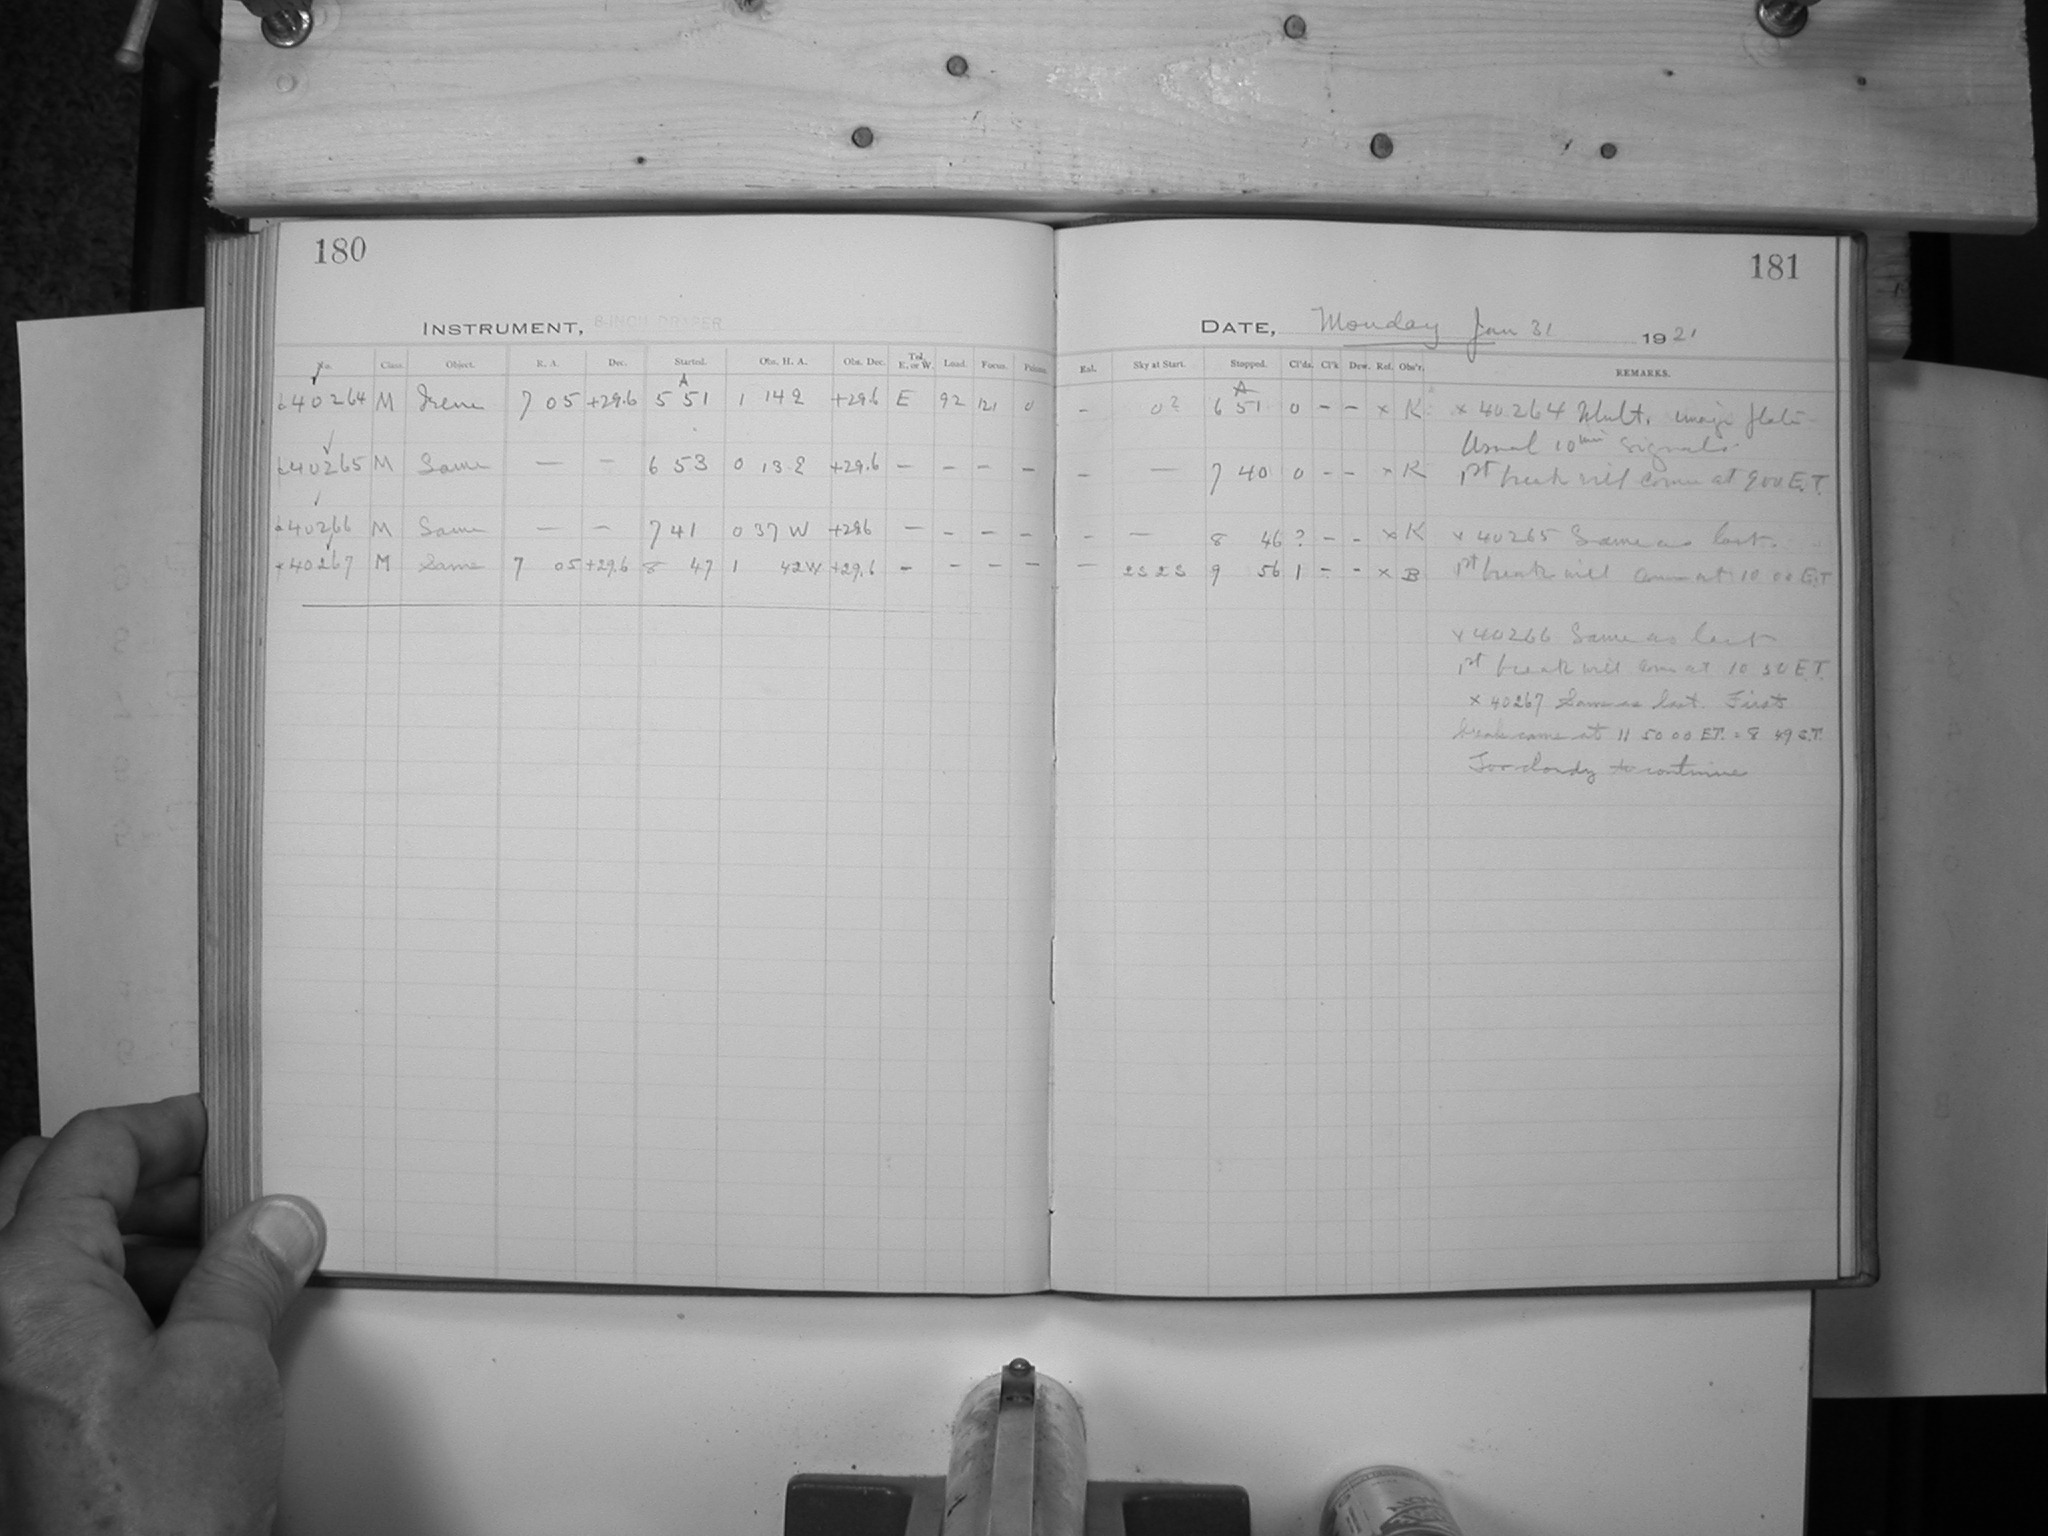 180
INSTRUMENT, 8-INCH DRAPER
No. Class. Object. R. A. Dec. Started. Obs. H. A. Obs. Dec. Tel. E. or W. Load. Focus.
40264 M Irene 7 05 +29.6 A 5 51 1 14 E +29.6 E 92 121 0
40265 M Same — — 6 53 0 13 E +29.6 – – – –
40266 M Same — — 7 41 0 37 W +29.6 – – – –
40267 M Same 7 05 +29.6 8 47 1 42 W +29.6 – – – –
181
DATE, Monday Jan 31 1921
Rsl. Sky at Start. Stopped. Cl'ds. Cl'k Dew. Ref. Obs'r. REMARKS.
– 0? A 6 51 0 – – x K x 40264 Mult. image plate
Usual 10 min signals
– — 7 40 0 – – x K 1st break will come at 9 00 E.T.
– — 8 46 ? – – x K x 40265 Same as last.
– 2S 2S 9 56 1 – – x B 1st break will come at 10 00 E.T.
x 40266 Same as last
1st break will come at 10 50 E.T.
x 40267 Same as last. First
break came at 11 50 00 E.T. = 8 49 S.T.
Too cloudy to continue